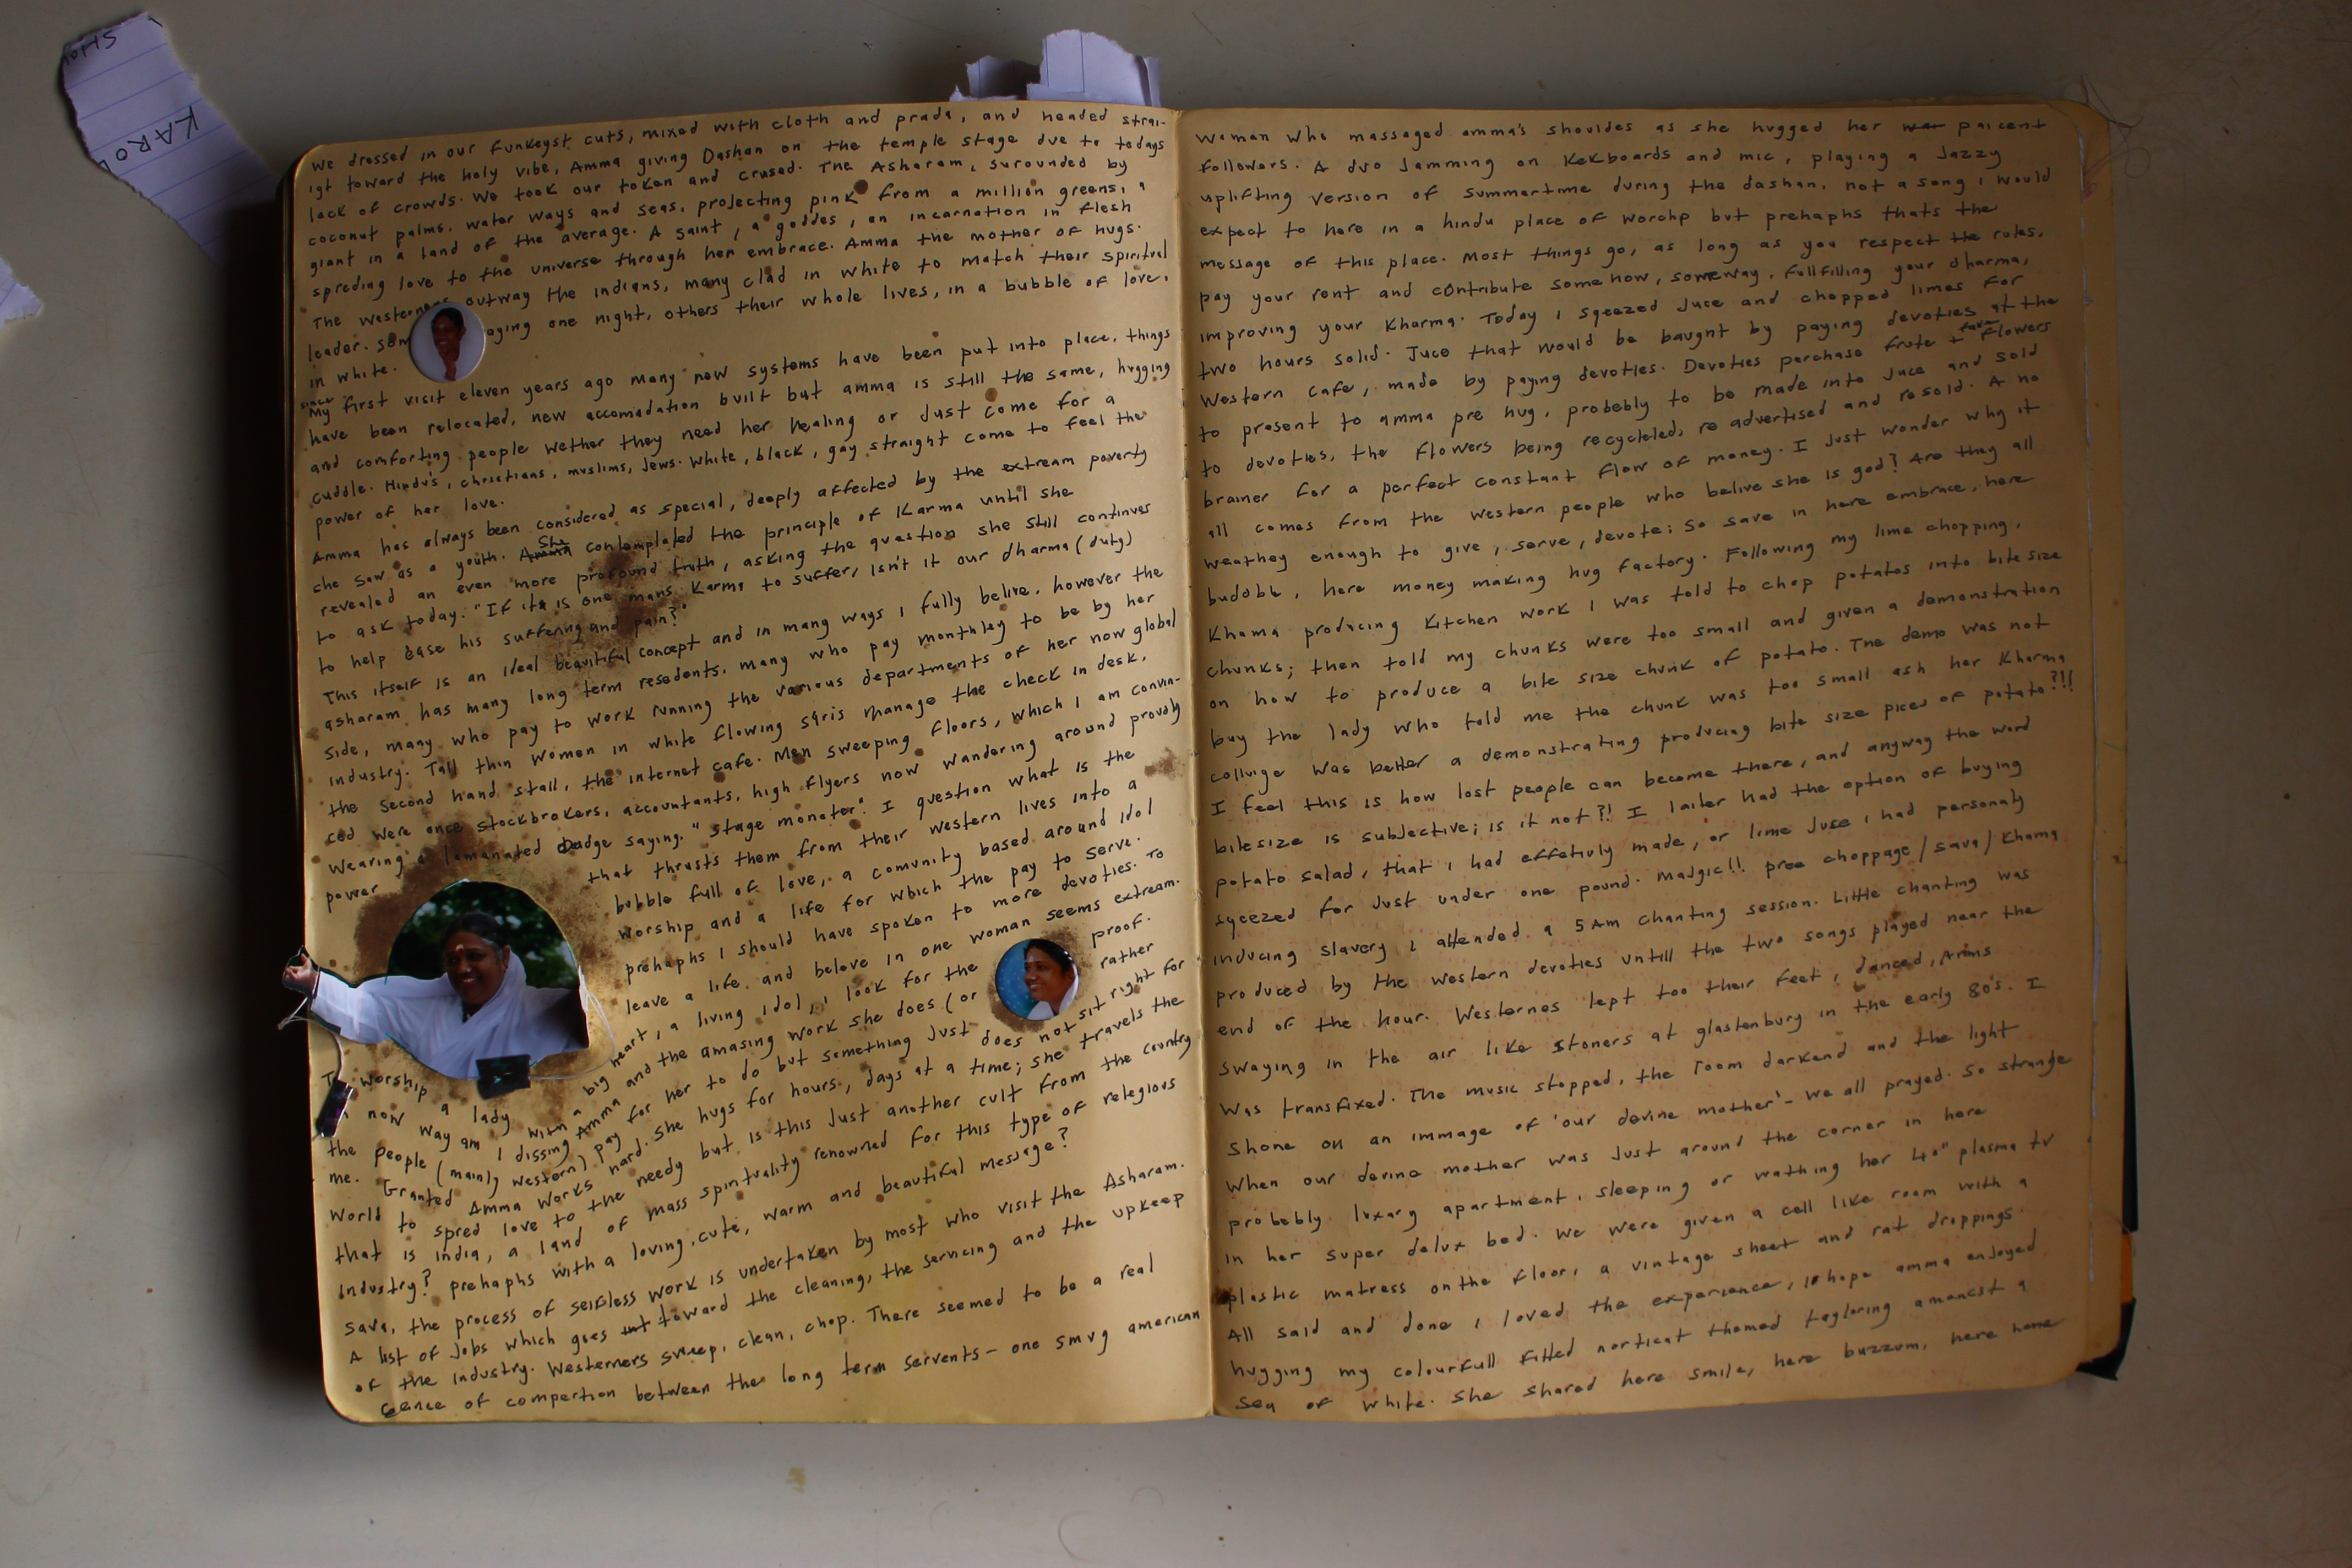 SHO
KARO
we dressed in our funkeyst cuts, mixed with cloth and prada, and headed strai-
igt toward the holy vibe, Amma giving Dashan on the temple stage due to todays
lack of crowds. We took our token and crused. The Asharam, surounded by
coconut palms, water ways and seas, projecting pink from a million greens, a
giant in a land of the average. A saint, a goddes, an incarnation in flesh
spreding love to the universe through her embrace. Amma the mother of hugs.
The Westerners outway the indians, many clad in white to match their spiritual
leader. som aying one night, others their whole lives, in a bubble of love,
in white.
since
My first visit eleven years ago many new systems have been put into place, things
have been relocated, new accomadation built but amma is still the same, hugging
and comforting people wether they need her healing or Just come for a
cuddle. Hindu's, christians, muslims, Jews. White, black, gay straight come to feel the
power of her love.
Amma has always been considered as special, deeply affected by the extream poverty
che saw as a youth. Amma She contemplated the principle of Karma until she
revealed an even more profound truth, asking the question she still continues
to ask today. "If its is one mans Karma to suffer, isn't it our dharma (duty)
to help ease his suffering and pain?"
This itself is an ideal beautiful concept and in many ways i fully belive, however the
asharam has many long term resedents, many who pay monthley to be by her
side, many who pay to work running the various departments of her now global
industry. Tall thin women in white flowing saris manage the check in desk,
the second hand stall, the internet cafe. Men sweeping floors, which I am convin-
ced were once stockbrokers, accountants, high flyers now wandering around proudly
wearing a lamanated badge saying. "stage monoter". I question what is the
power that thrusts them from their western lives into a
bubble full of love, a comunity based around idol
worship and a life for which the pay to serve.
prehaphs I should have spoken to more devoties. To
leave a life and beleve in one woman seems extream.
To worship a lady with a big heart, a living idol, i look for the proof.
In now way am I dissing Amma and the amasing work she does (or rather
the people (mainly western) pay for her to do but something Just does not sit right for
me. Granted Amma works hard. She hugs for hours, days at a time; she travels the
world to spred love to the needy but is this Just another cult from the country
that is india, a land of mass spirituality renowned for this type of relegious
industry? prehaphs with a loving, cute, warm and beautiful message?
Sava, the process of selfless work is undertaken by most who visit the Asharam.
A list of Jobs which goes int toward the cleaning, the servicing and the upkeep
of the industry. Westerners sweep, clean, chop. There seemed to be a real
cence of compertion between the long term servents - one smug american
woman who massaged amma's shouldes as she hugged her paicent
followers. A duo Jamming on Kekboards and mic, playing a Jazzy
uplifting version of summertime during the dashan, not a song i would
expect to here in a hindu place of worchp but prehaphs thats the
message of this place. Most things go, as long as you respect the rules,
pay your rent and contribute somehow, someway, fullfilling your dharma,
improving your Kharma. Today i sqeezed Juce and chopped limes for
two hours solid. Juce that would be baught by paying devoties at the
Western Cafe, made by paying devoties. Devoties purchase frute + fake flowers
to present to amma pre hug, probebly to be made into Juce and sold
to devoties, the flowers being recycleled, re advertised and resold. A no
brainer for a perfect constant flow of money. I Just wonder why it
all comes from the western people who belive she is god? Are they all
weathey enough to give, serve, devote; so save in here embrace, here
bubble, here money making hug factory. Following my lime chopping,
Khama producing Kitchen work I was told to chop potatos into bite size
chunks; then told my chunks were too small and given a demonstration
on how to produce a bite size chunk of potato. The demo was not
buy the lady who told me the chunk was too small ash her Kharma
collvige was better a demonstrating producing bite size pices of potato?!!
I feel this is how lost people can become there, and anyway the word
bitesize is subjective; is it not?! I laiter had the option of buying
potato salad, that i had effetivly made, or lime Juse i had personaly
sqeezed for Just under one pound. Madgic!! pree choppage/sava/Khama
inducing slavery i attended a 5am chanting session. Little chanting was
produced by the western devoties untill the two songs played near the
end of the hour. Westernes lept too their feet, danced, Arms
swaying in the air like stoners at glastenbury in the early 80's. I
was transfixed. The music stopped, the room darkend and the light
shone on an immage of 'our devine mother' - we all prayed. So strange
When our devine mother was Just around the corner in here
probebly luxary apartment, sleeping or wathing her 40" plasma tv
in her super delux bed. We were given a cell like room with a
plastic matress on the floor, a vintage sheet and rat droppings.
All said and done i loved the experiance, i hope amma enjoyed
hugging my colourfull fitted norticat themed tayloring amoncst a
sea of white. She shared here smile, here buzzum, here home